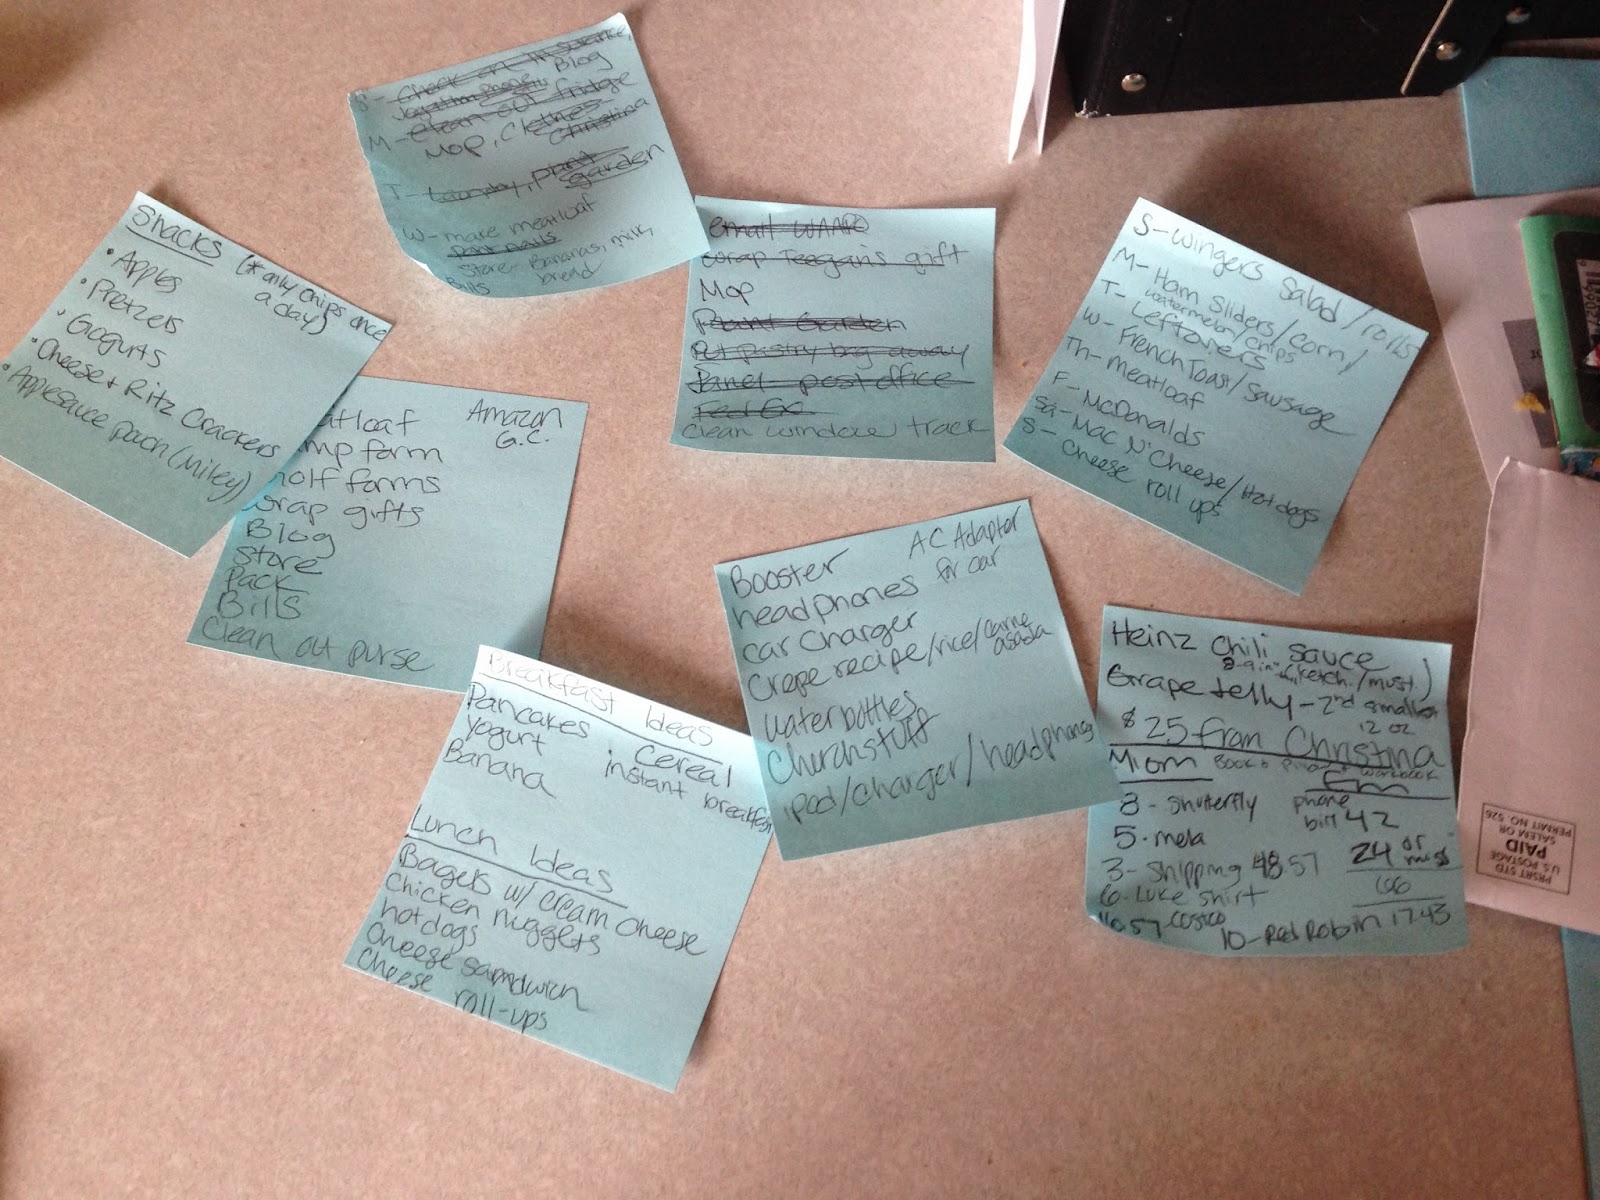 S- Check on insurance,
Blog
Clean out fridge
M- Mop, Clothes
Christina
T- Laundry, plant
garden
W- make meatloaf
Store- Bananas, milk,
Bills bread
Snacks (* only chips once
a day)
• Apples
• Pretzels
• Gogurts
• Cheese + Ritz Crackers
• Applesauce pouch (Miley)
atloaf Amazon
G.C.
mp farm
olf farms
wrap gifts
Blog
Store
Pack
Bills
Clean out purse
email
wrap Teegan's gift
Mop
Plant Garden
Put pastry bag away
Janel- post office
Fed Ex
Clean window track
S- wingers Salad/rolls
M- Ham Sliders/corn/
watermelon/chips
T- Leftovers
W- French Toast/sausage
Th- meatloaf
F- McDonalds
Sa- Mac N' Cheese/Hot dogs
S- Cheese roll ups
Breakfast Ideas
Pancakes Cereal
Yogurt instant breakfast
Banana
Lunch Ideas
Bagels w/ cream cheese
Chicken nuggets
hotdogs
Cheese sandwich
Cheese roll-ups
Booster AC Adapter
for car
headphones
car charger
Crepe recipe/rice/carne
asada
Waterbottles
Church stuff
ipod/charger/headphones
Heinz Chili Sauce
Grape Jelly - 2nd smallest
12 oz
$25 from Christina
8 - Shutterfly phone
bill 42
5 - mela
24 or
3 - Shipping 48.57
6 - Luke shirt
Costco
10 - Red Robin 17.43
PRSRT STD
U.S. POSTAGE
PAID
SALEM OR
PERMIT NO. 526